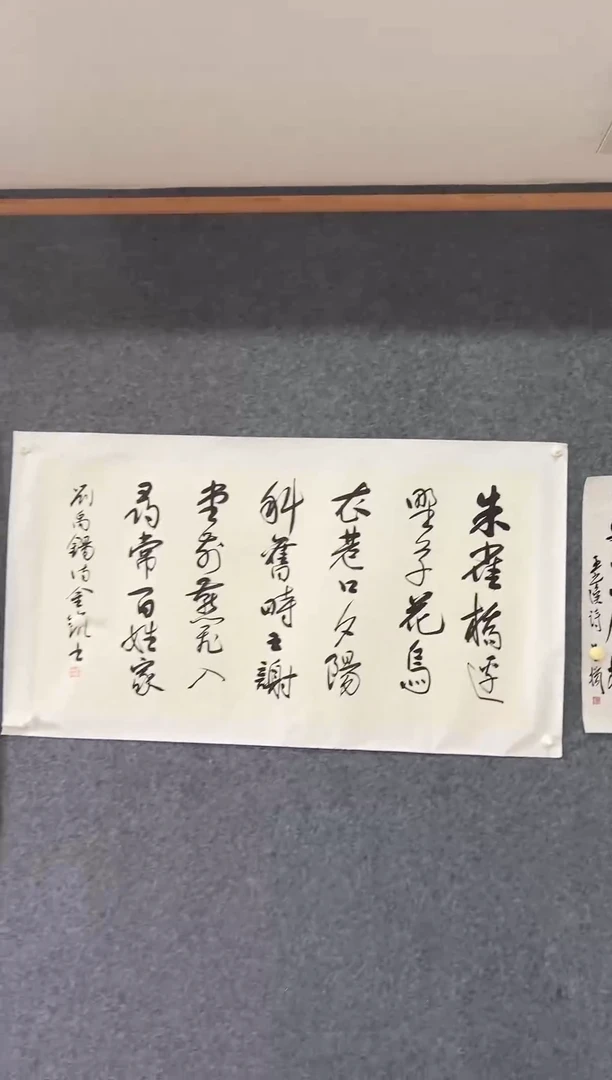 朱雀橋邊
野草花烏
衣巷口夕陽
斜舊時王謝
堂前燕飛入
尋常百姓家
劉禹錫詩金凱书
王之渙詩